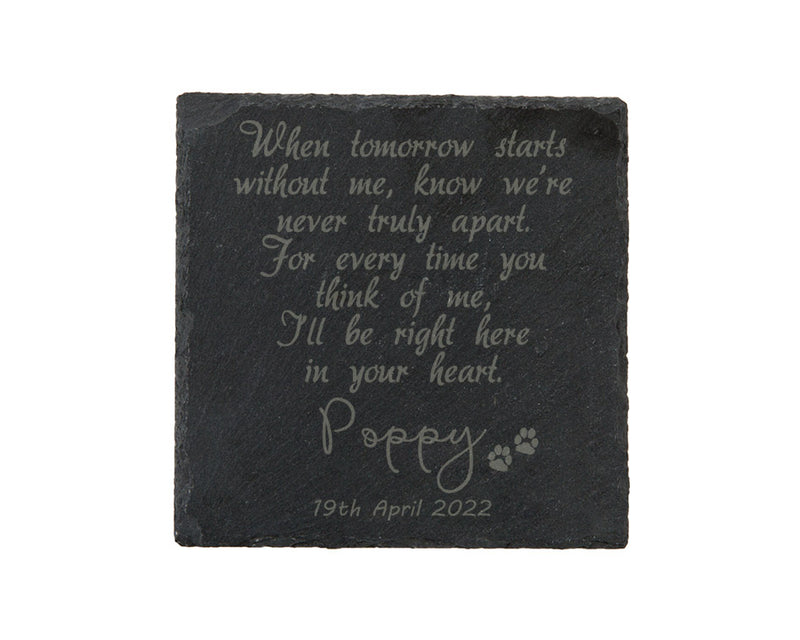 When tomorrow starts
without me, know we're
never truly apart.
For every time you
think of me,
I'll be right here
in your heart.
Poppy
19th April 2022